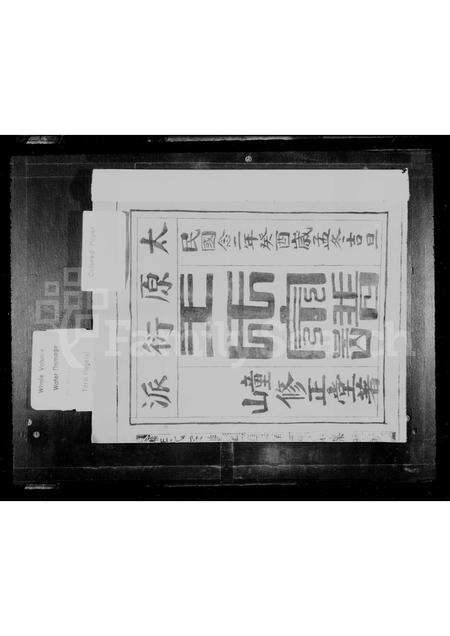 太原衍派
民國念二年癸酉歲孟冬吉旦
王氏宗譜
疃山修正堂著
Colored Paper
Whole Volume
Water Damage
Torn Page(s)
FamilySearch